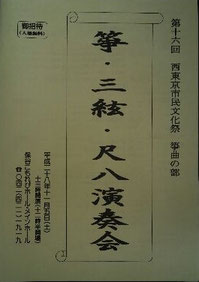 御招待
(入場無料)
第十六回 西東京市民文化祭 箏曲の部
箏・三絃・尺八演奏会
平成二十八年十一月五日(土)
十三時開演(十二時半開場)
保谷こもれびホール・メインホール
☎〇四二-四二一-一九一九